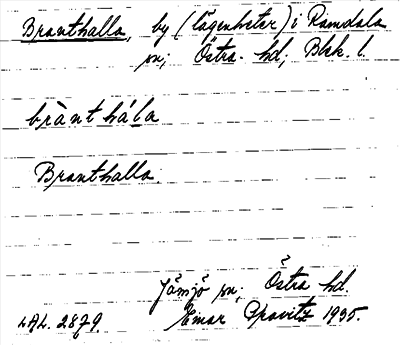 Branthalla, by (lägenheter) i Ramdala
sn; Östra hd, Blek. l.
brànthála
Branthalla.
Jämjö sn; Östra hd.
LAL. 2879. Einar 1935.